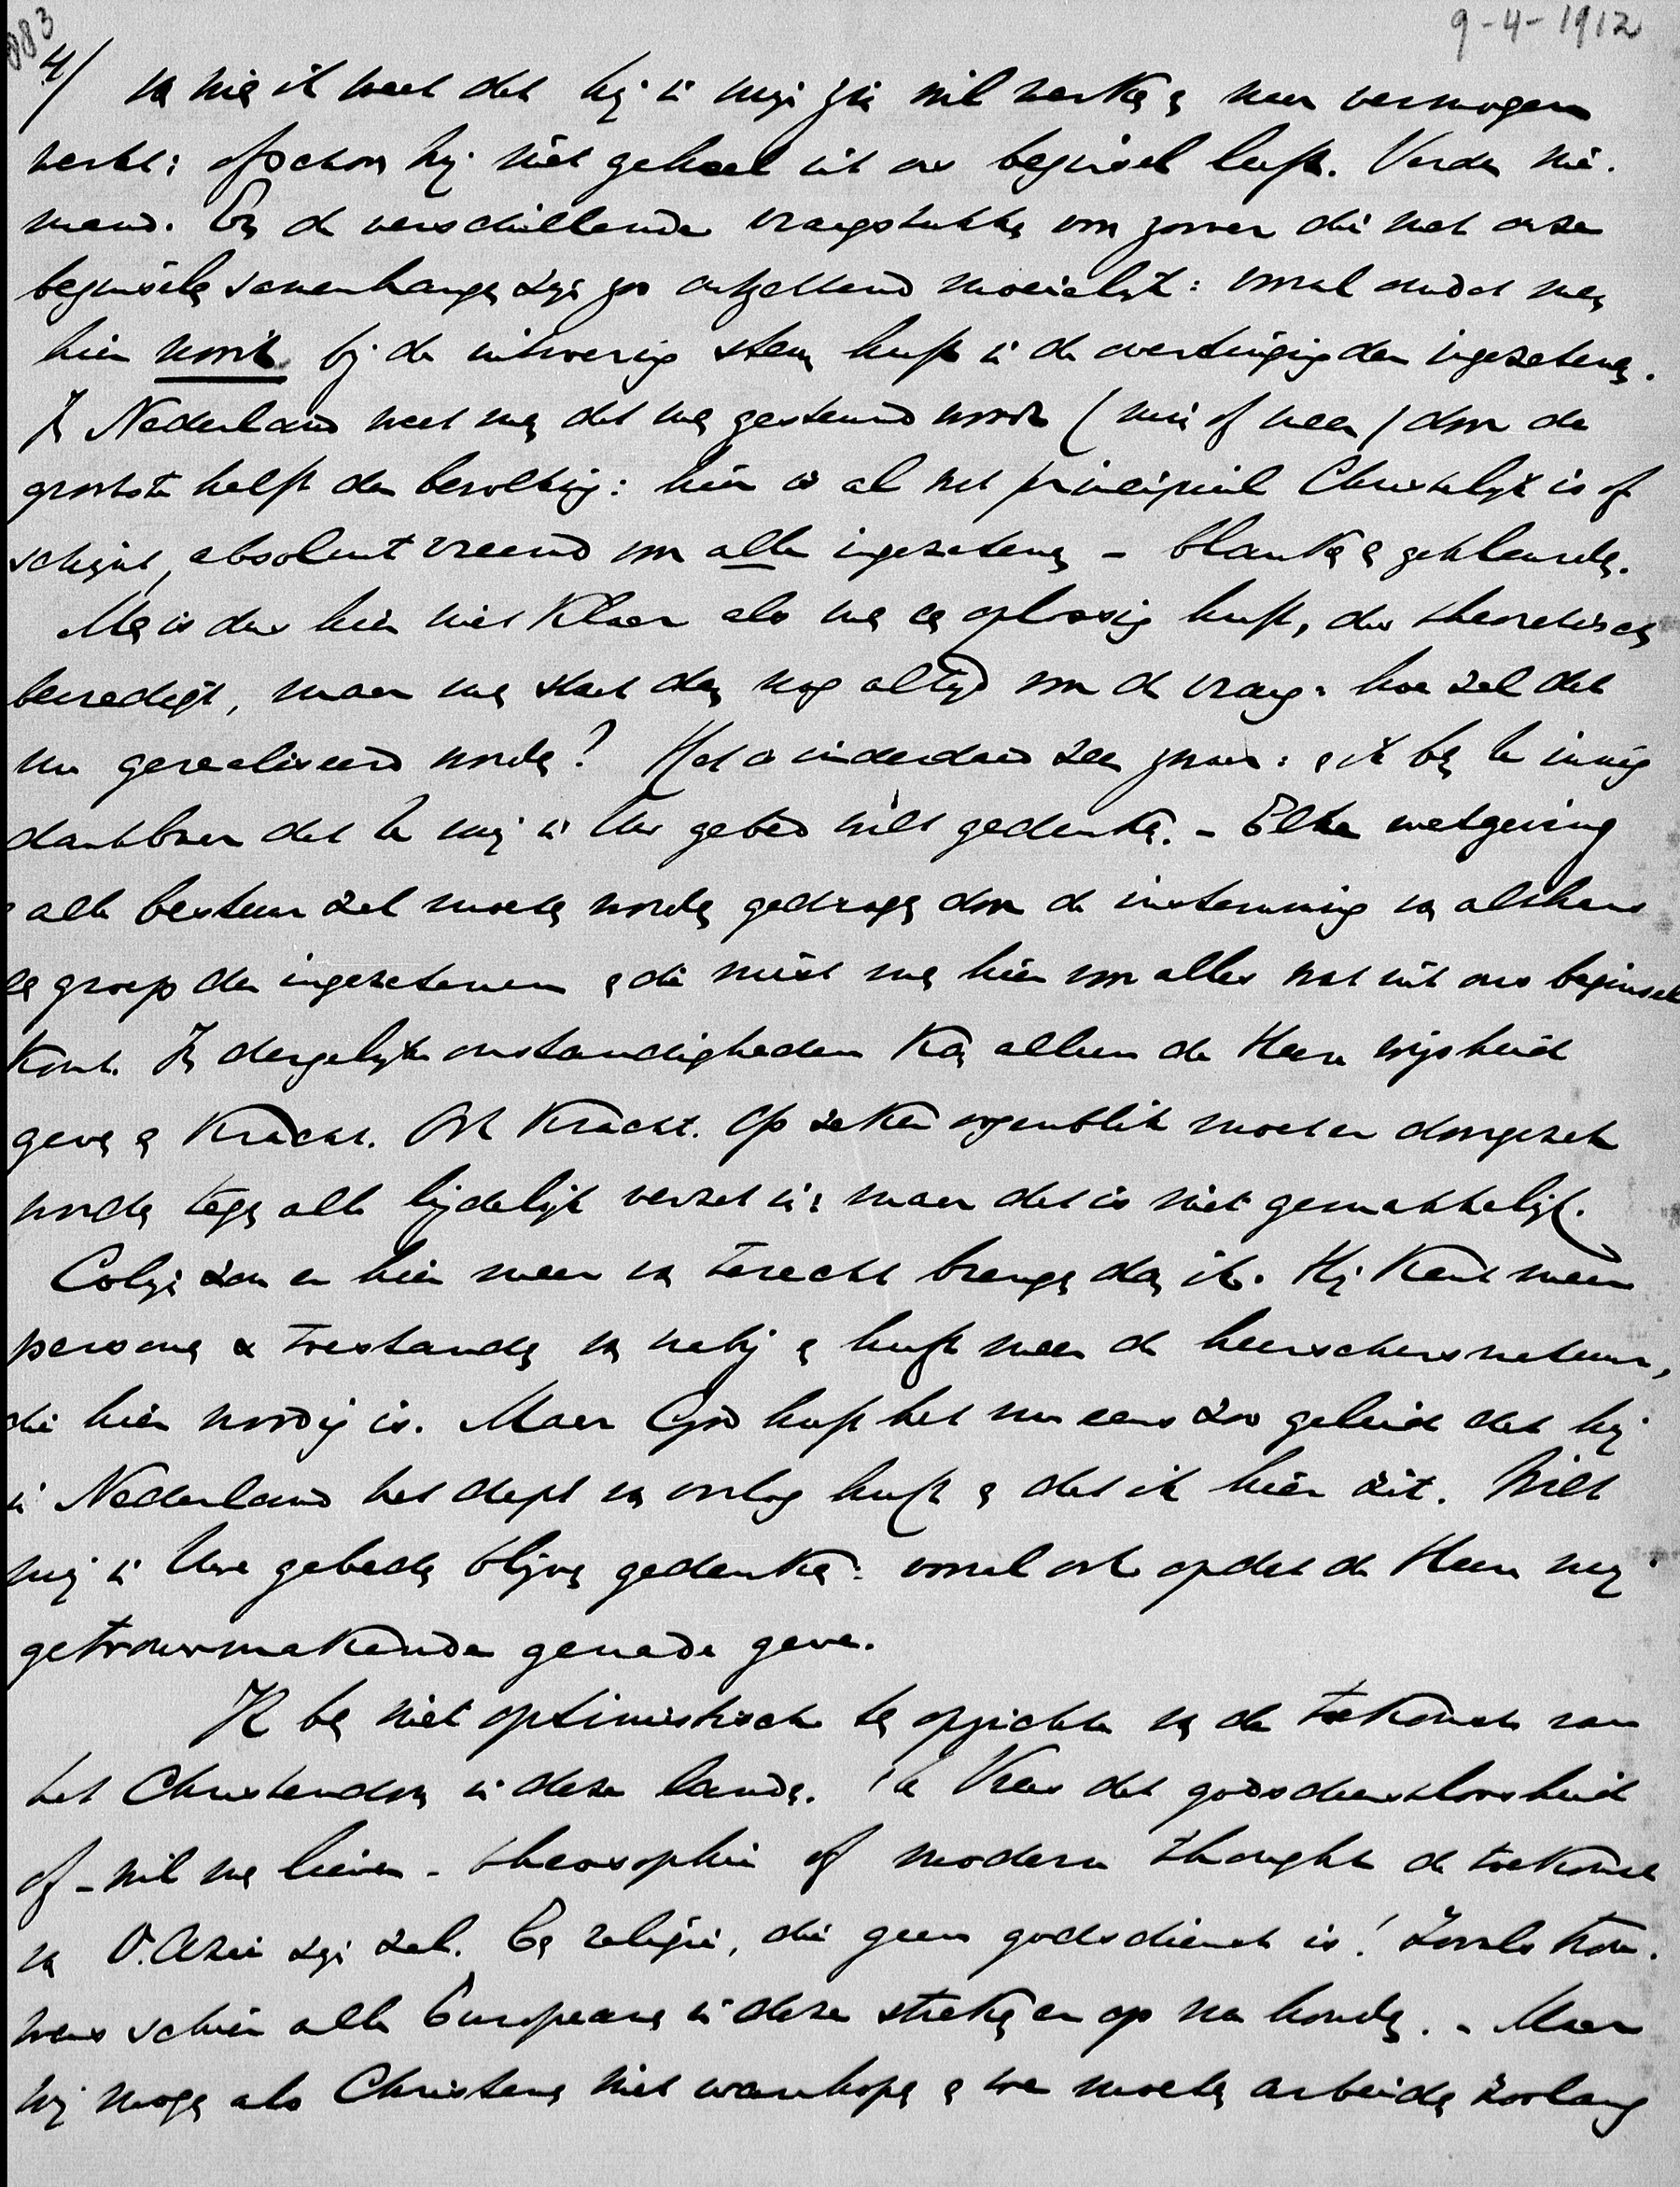 9-4-1912
4/ van wie ik weet dat hij in mijn zin wil werken en naar vermogen
werkt: ofschoon hij niet geheel uit ons beginsel leeft. Verder nie-
mand. En de verschillende vraagstukken voor zoover die met onze
beginselen samenhangen zijn zoo ontzettend moeielijk: vooral omdat men
hier nooit bij de uitvoering steun heeft in de overtuiging der ingezetenen.
In Nederland weet men dat men gesteund wordt (min of meer) door de
grootste helft der bevolking: hier is al wat principieel Christelijk is of
schijnt, absoluut vreemd voor alle ingezetenen - blanken en gekleurden.
Men is dus hier niet klaar als men een oplossing heeft, die theoretisch
bevredigt, maar men staat dan nog altijd voor de vraag: hoe zal dat
nu gerealiseerd worden? Het is inderdaad zeer zwaar: en ik ben U innig
dankbaar dat U mij in Uw gebed wilt gedenken. - Elke wetgeving
en alle bestuur zal moeten worden gedragen door de instemming van althans
een groep der ingezetenen en die mist men hier voor alles wat uit ons beginsel
komt. In dergelijke omstandigheden kan alleen de Heere wijsheid
geven en kracht. Ook kracht. Op zeker oogenblik moet er doorgezet
worden tegen alle lijdelijk verzet in: maar dat is niet gemakkelijk.
Colijn zou er hier meer van terecht brengen dan ik. Hij kent meer
personen & toestanden van nabij en heeft meer de heerschersnatuur,
die hier noodig is. Maar God heeft het nu eens zoo geleid dat hij
in Nederland het dept van oorlog heeft en dat ik hier zit. Wilt
mij in Uwe gebeden blijven gedenken: vooral ook opdat de Heere mij
getrouwmakende genade geve.
Ik ben niet optimistisch ten opzichte van de toekomst van
het Christendom in deze landen. Ik vrees dat godsdienstloosheid
of - wil men liever - theosophie of modern thought de toekomst
van O. Azië zijn zal. Een religie, die geen godsdienst is! Zooals trou-
wens schier alle Europeanen in deze streken er op na houden. - Maar
wij mogen als Christenen niet wanhopen en we moeten arbeiden zoolang